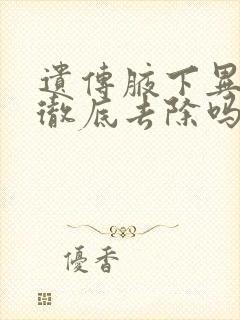 遺傳腋下異
徹底去除吗
優香